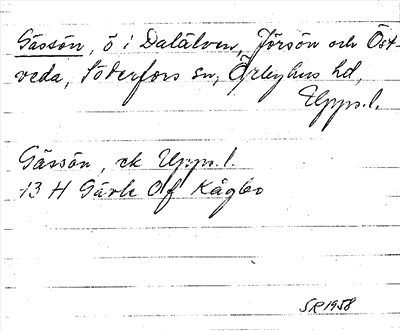 Gässön, ö i Dalälven, Jörsön och Öst-
veda, Söderfors sn, Örbyhus hd,
Upps.l.
Gässön, ek Upps.l.
13 H Gävle 0f Kågbo
SR 1958